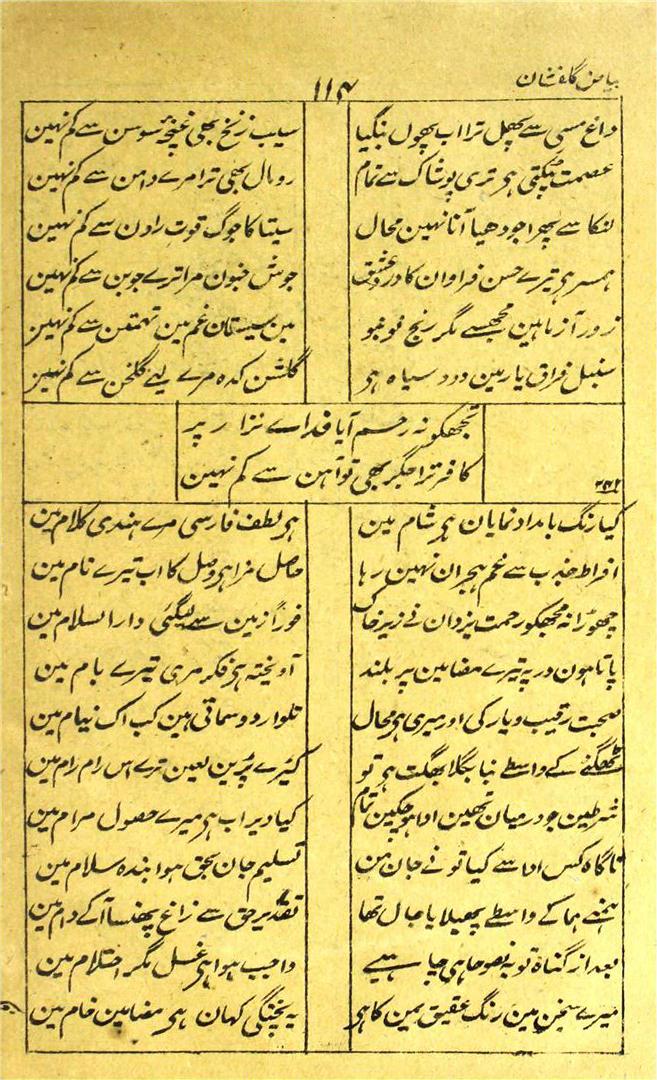 بیاض گلفشان
۱۱۴
داغ مسی سے پھل ترا اب پھول بنگیا
سیب زنخ بھی غنچۂ سوسن سے کم نہین
عصمت ٹپکتی ہی تری پوشاک سے تمام
رومال بھی ترا مرے دامن سے کم نہین
لنکا سے پھر اجودھیا آنا نہین محال
سیتا کا جوگ قوت راون سے کم نہین
ہمسر ہی تیرے حسن فراوان کا درد عشق
جوش جنون مرا ترے جوبن سے کم نہین
زور آزما ہین مجھسے مگر رنج نو بنو
مین سیستان غم مین تہمتن سے کم نہین
سنبل فراق یار مین دود سیاہ ہی
گلشن کدہ مرے لیے گلخن سے کم نہین
تجھکو نہ رحم آیا فداے نزار پر
کافر ترا جگر بھی تو آہن سے کم نہین
۲۴۲
کیا رنگ بامداد نمایان ہی شام مین
ہی لطف فارسی مرے ہندی کلام مین
افراط جذب سے غم ہجران نہین رہا
حاصل مزا ہی وصل کا اب تیرے نام مین
چھوڑا نہ مجھکو رحمت یزدان نے زیر خاک
فوراً زمین سے لیگئی دار السلام مین
پاتا ہون در پہ تیرے مضامین سر بلند
آویختہ ہی فکر مری تیرے بام مین
صحبت رقیب و یار کی اور میری ہی محال
تلوار دو سماتی ہین کب اک نیام مین
ٹھگنے کے واسطے نیا بگلا بھگت ہی تو
کیڑے پڑین لعین ترے اس رام رام مین
شرطین جو درمیان تھین ادا ہو چکین تمام
کیا دیر اب ہی میرے حصول مرام مین
ناگاہ کس ادا سے کیا تو نے جان من
تسلیم جان بحق ہوا بندہ سلام مین
ہمنے ہما کے واسطے پھیلایا جال تھا
تقدیر حق سے زاغ پھنسا آکے دام مین
بعد از گناہ توبہ نصوحا ہی چاہیے
واجب ہوا ہی غسل مگر احتلام مین
میرے سخن مین رنگ عقیق یمن کا ہی
یہ پختگی کہان ہی مضامین خام مین